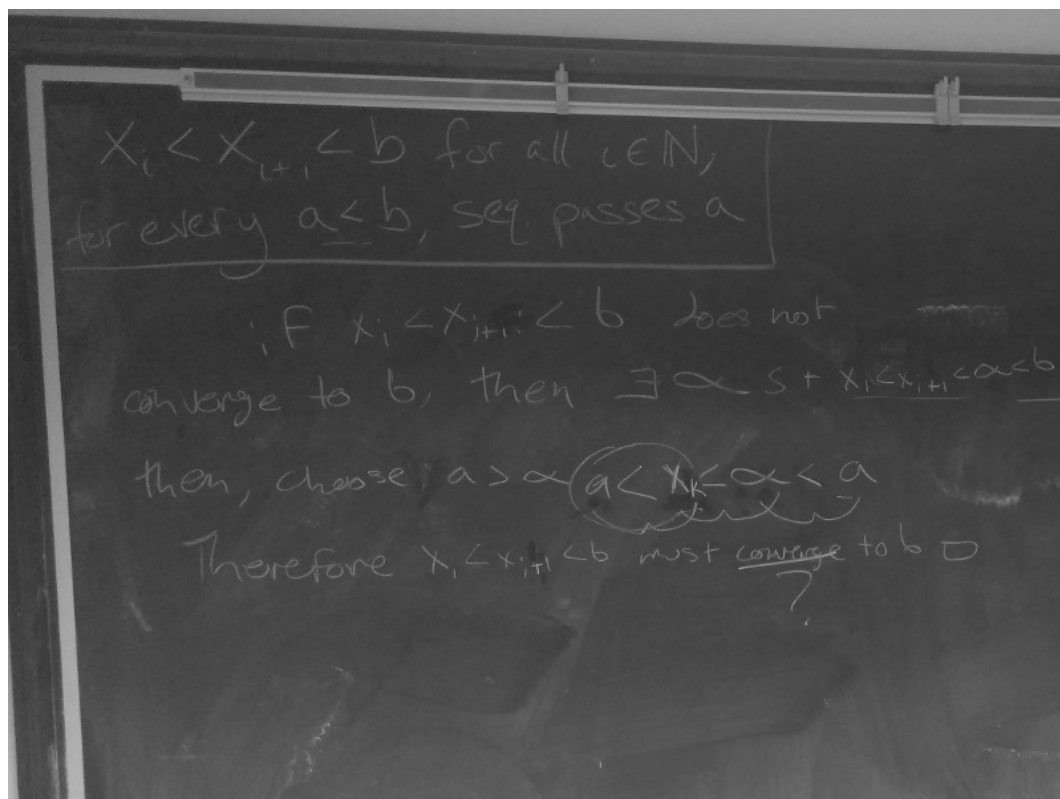 Xᵢ < Xᵢ₊₁ < b for all i ∈ ℕ,
for every a < b, seq. passes a
if xᵢ < xᵢ₊₁ < b does not
converge to b, then ∃ α st xᵢ < xᵢ₊₁ < α < b
then, choose a > α a < xₖ ≤ α < a
Therefore xᵢ < xᵢ₊₁ < b must converge to b □
?